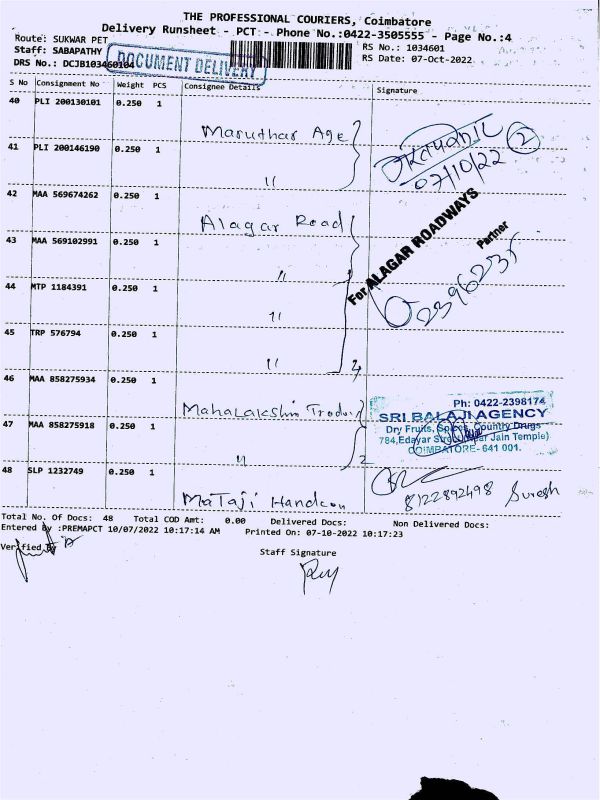 THE PROFESSIONAL COURIERS, Coimbatore
Delivery Runsheet - PCT - Phone No.:0422-3505555 - Page No.:4
Route: SUKWAR PET
RS No.: 1034601
Staff: SABAPATHY
RS Date: 07-Oct-2022
DRS No.: DCJB103460104
DOCUMENT DELIVERY
S No Consignment No Weight PCS Consignee Details Signature
40 PLI 200130101 0.250 1
Maruthar Age
41 PLI 200146190 0.250 1
"
07/10/22
2
42 MAA 569674262 0.250 1
Alagar Road
For ALAGAR ROADWAYS
Partner
43 MAA 569102991 0.250 1
"
44 MTP 1184391 0.250 1
"
45 TRP 576794 0.250 1
"
46 MAA 858275934 0.250 1
Mahalakshmi
Ph: 0422-2398174
SRI BALAJI AGENCY
Dry Fruits, Spices, Country Drugs
784,Edayar Street,(Near Jain Temple)
COIMBATORE- 641 001.
47 MAA 858275918 0.250 1
"
2
48 SLP 1232749 0.250 1
Mataji
8122892498 Suresh
Total No. Of Docs: 48 Total COD Amt: 0.00 Delivered Docs: Non Delivered Docs:
Entered By :PREMAPCT 10/07/2022 10:17:14 AM Printed On: 07-10-2022 10:17:23
Verified By
Staff Signature